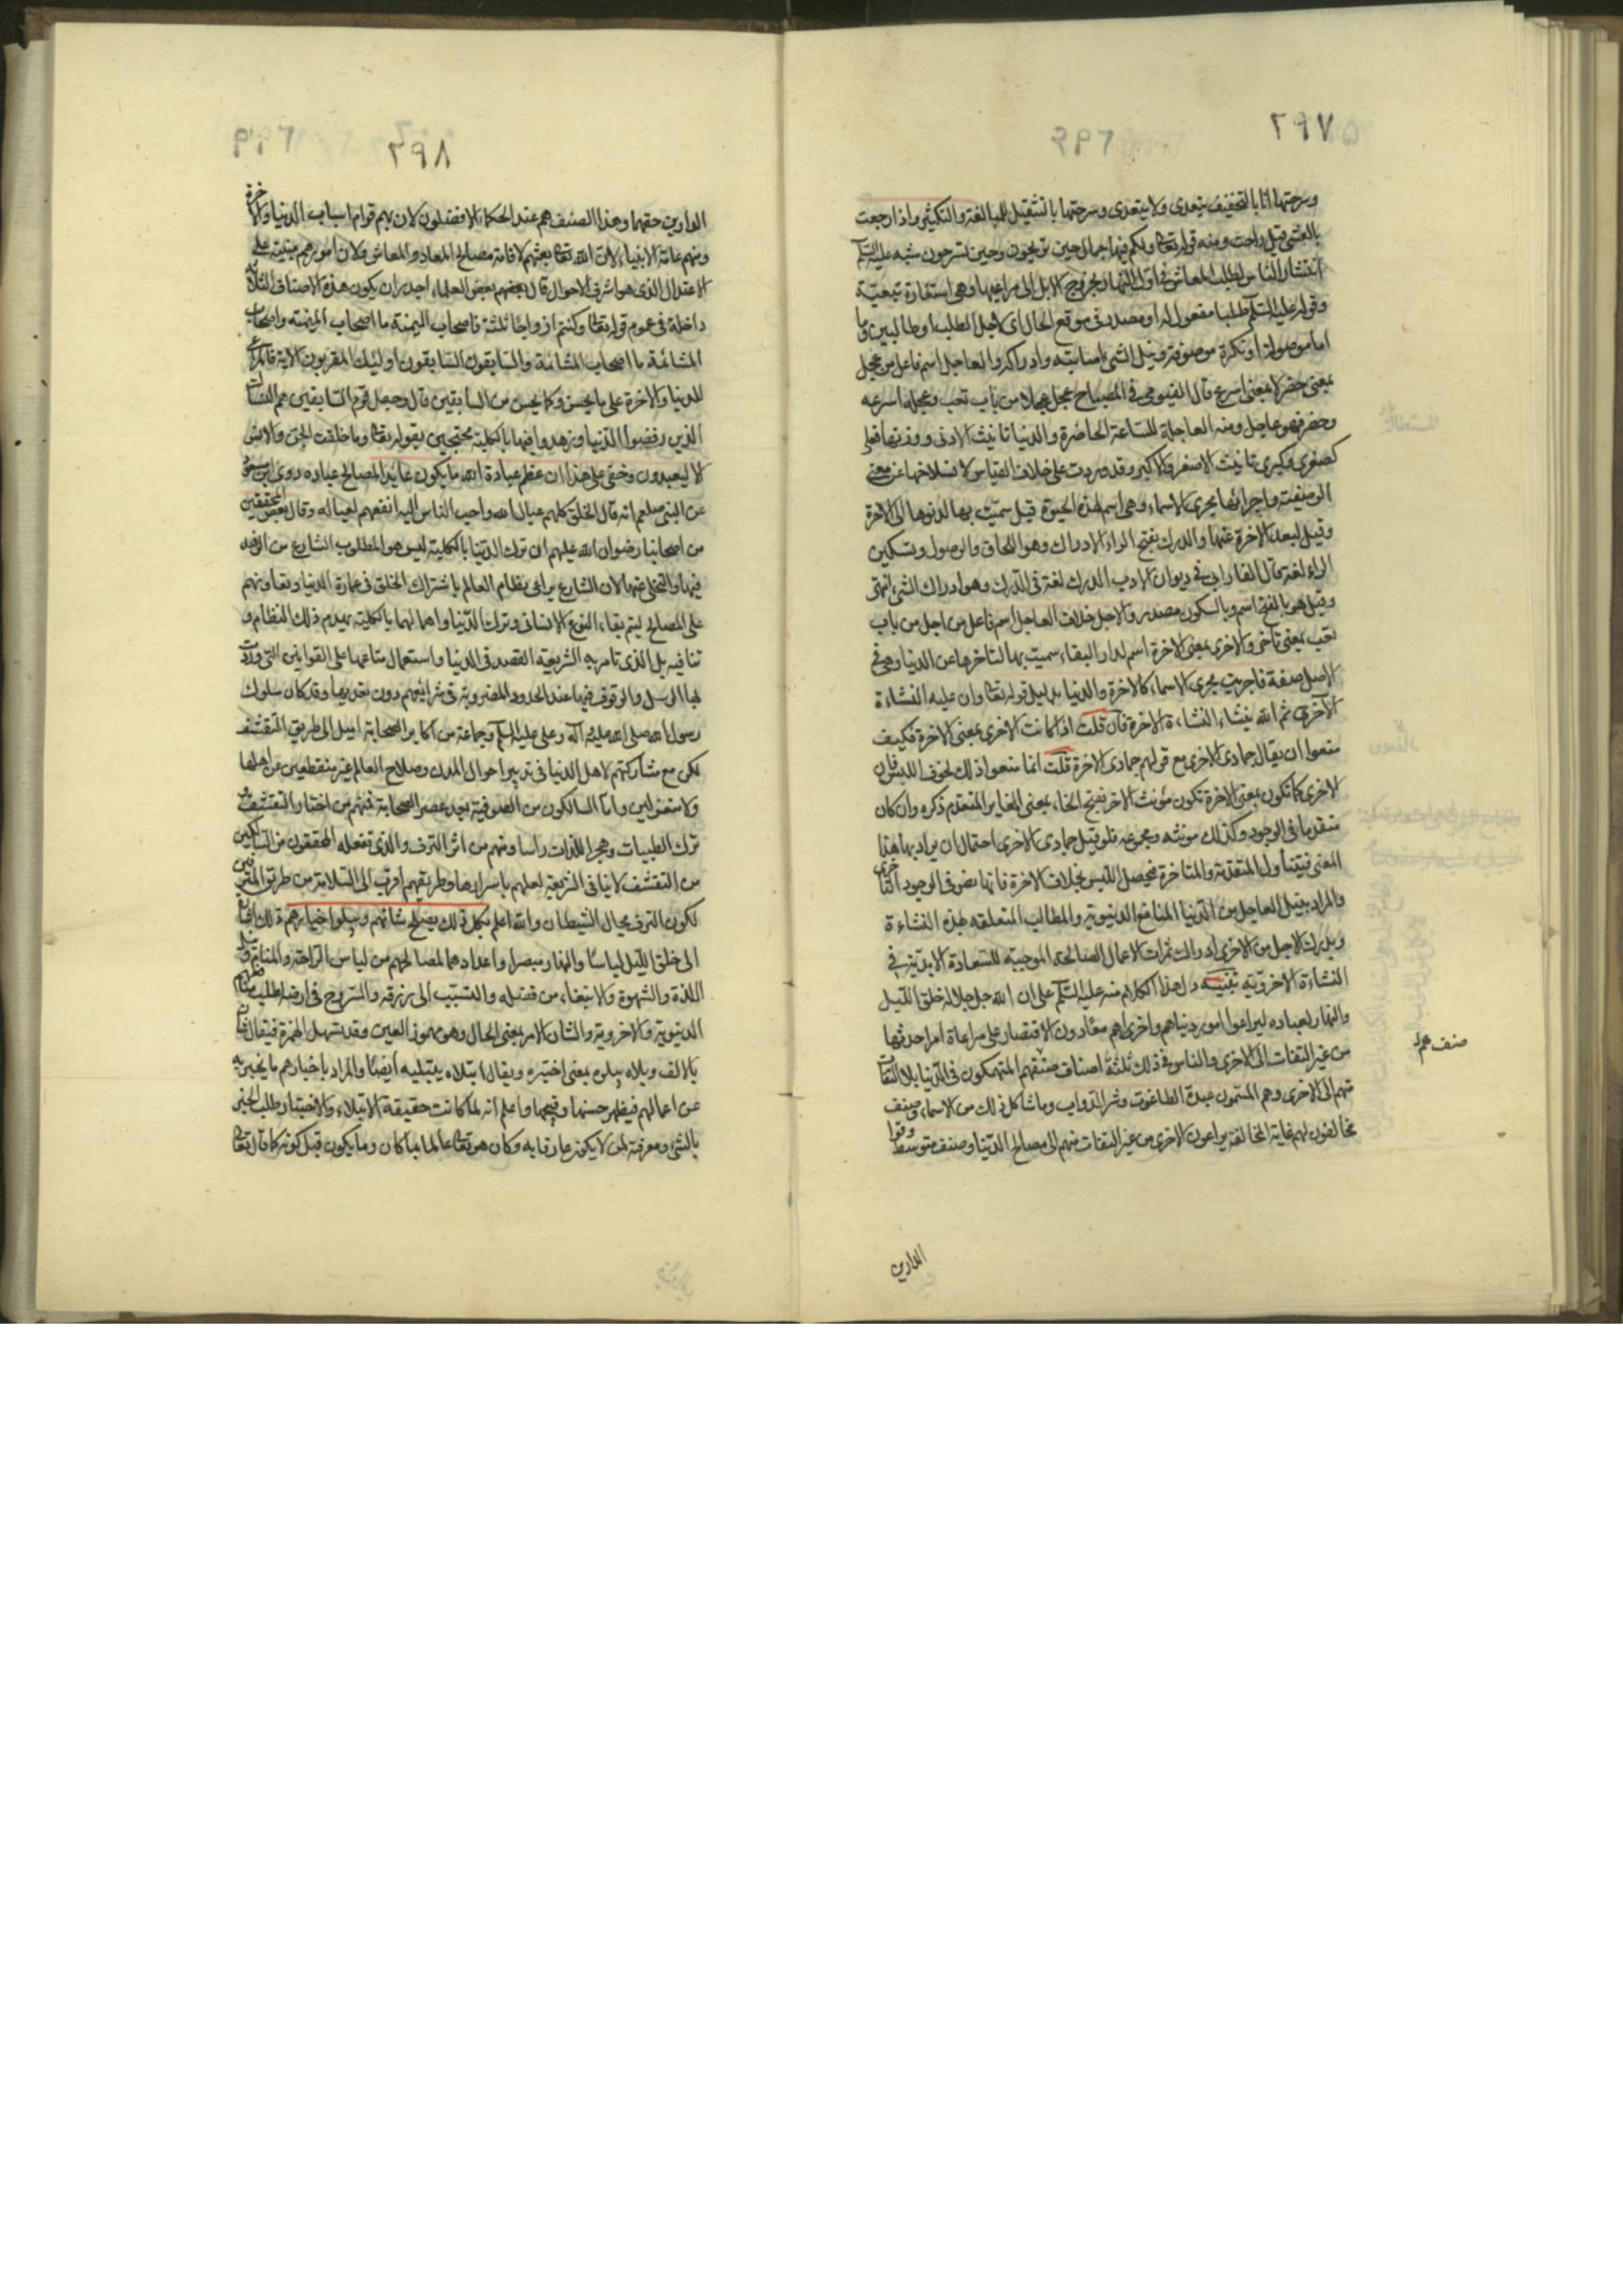 ٢٩٧
وسرحتها انا بالتخفيف يتعدى ولا يتعدى وسرحتها بالتثقيل للمبالغة والتكثير واذا رجعت
بالعشى قيل راحت ومنه قوله تعا ولكم فيها جمال حين تريحون وحين تسرحون شبه عليه السلم
انتشار الناس لطلب المعاش فى اول النهار بخروج الابل الى مراعيها وهى استعارة تبعية
وقوله عليه السلم طلبا مفعول له او مصدر فى موقع الحال اى لاجل الطلب او طالبين وما
اما موصولة او نكرة موصوفة ونيل الشىء اصابته وادراكه والعاجل اسم فاعل من عجل
بمعنى حضر لا بمعنى اسرع قال الفيومى فى المصباح عجل عجلا من باب تعب وعجلة اسرع
وحضر فهو عاجل ومنه العاجلة للساعة الحاضرة والدنيا تانيث الادنى ووزنها فعلى
كصغرى وكبرى تانيث الاصغر والاكبر وقد وردت على خلاف القياس لانسلاخها عن معنى
الوصفية واجرائها مجرى الاسماء وهى اسم لهذه الحيوة قيل سميت بها لدنوها الى الاخرة
وقيل لبعد الاخرة عنها والدرك بفتح الراء الادراك وهو اللحاق والوصول وبتسكين
الراء لغة قال الفارابى فى ديوان الادب الدرك لغة فى الدرك وهو ادراك الشىء انتهى
وقيل هو بالفتح اسم وبالسكون مصدر والاجل خلاف العاجل اسم فاعل من اجل من باب
تعب بمعنى تاخر والاخرى بمعنى الاخرة اسم لدار البقاء سميت بها لتاخرها عن الدنيا وهى فى
الاصل صفة فاجريت مجرى الاسماء كالاخرة والدنيا بدليل قوله تعا وان عليه النشاءة
الاخرى ثم الله ينشاء النشاءة الاخرة فان قلت اذا كانت الاخرى بمعنى الاخرة فكيف
منعوا ان يقال جمادى الاخرى مع قولهم جمادى الاخرة قلت انما منعوا ذلك لخوف اللبس فان
الاخرى كما تكون بمعنى الاخرة تكون مؤنث الاخر بفتح الخاء بمعنى المغاير المتقدم ذكره وان كان
متقدما فى الوجود وكذلك مونثه ومجموعه فلو قيل جمادى الاخرى احتمال ان يراد بها هذا
المعنى فيتناول المتقدمة والمتاخرة فيحصل اللبس بخلاف الاخرة فانها نص فى الوجود
والمراد بنيل العاجل من الدنيا المنافع الدنيوية والمطالب المتعلقه بهذه النشاءة
وبدرك الاجل من الاخرى ادراك ثمرات الاعمال الصالحة الموجبة للسعادة الابدية فى
النشاءة الاخروية تنبيه دل هذا الكلام منه عليه السلم على ان الله جل جلاله خلق الليل
والنهار لعباده ليراعوا امور دنياهم واخراهم معا دون الاقتصار على مراعاة امر احدهما
من غير التفات الى الاخرى والناس فى ذلك ثلثة اصناف صنف هم المنهمكون فى الدنيا بلا التفات
منهم الى الاخرى وهم المسمون عبدة الطاغوت وشر الدواب وما شاكل ذلك من الاسماء وصنف
مخالفون لهم غاية المخالفة يراعون الاخرى من غير التفات منهم الى مصالح الدنيا وصنف متوسط وفوا
صنف هم
الدارين
٢٩٨
الدارين حقهما وهذا الصنف هم عند الحكماء الافضلون لان بهم قوام اسباب الدنيا والاخرة
ومنهم عامة الانبياء لان الله تعا بعثهم لاقامة مصالح المعاد والمعاش ولان امورهم مبنية على
الاعتدال الذى هو اشرف الاحوال قال بعضهم بعض العلماء اجدر ان يكون هذه الاصناف الثلاثه
داخلة فى عموم قوله تعا وكنتم ازواجا ثلثة فاصحاب الميمنة ما اصحاب الميمنه واصحاب
المشائمة ما اصحاب المشائمة والسابقون السابقون اولئك المقربون الاية
للدنيا والاخرة على ما يحسن وكما يحسن من السابقين قال وجعل قوم السابقين هم النساك
الذين رفضوا الدنيا وزهدوا فيها بالكلية محتجين بقوله تعا وما خلقت الجن والانس
الا ليعبدون وخفى على هذا ان عظم عبادة الله ما يكون عايدا لمصالح عباده روى
عن النبى صلعم انه قال الخلق كلهم عيال الله واحب الناس اليه انفعهم لعياله وقال بعض المحققين
من اصحابنا رضوان الله عليهم ان ترك الدنيا بالكلية ليس هو المطلوب الشارع من الزهد
فيها والتخلى عنها لان الشارع يراعى نظام العالم باشتراك الخلق فى عمارة الدنيا وتعاونهم
على المصالح ليتم بقاء النوع الانسانى وترك الدنيا واهمالها بالكلية يهدم ذلك النظام و
تنافيه بل الذى تامر به الشريعة القصد فى الدنيا واستعمال متاعها على القوانين التى وردت
بها الرسل والوقوف فيها عند الحدود المضروبة فى شرائعهم دون تعديها وقد كان سلوك
رسول الله صلى الله عليه وآله وعلى عليه السلم وجماعة من اكابر الصحابة اميل الى طريق التقشف
لكن مع مشاركتهم لاهل الدنيا فى تدبير احوال المدن وصلاح العالم غير منقطعين عن اهلها
ولا منعزلين واما السالكون من الصوفية بعد عصر الصحابة فمنهم من اختار التقشف
ترك الطيبات وهجر اللذات راسا ومنهم من اثر الترف والذى تفعله المحققون من السالكين
من التقشف لا ينافى الشريعة لعلمهم باسرارها وطريقهم اقرب الى السلامة من طريق المترفين
لكون الترف مجال الشيطان والله اعلم بكل ذلك يصلح شانهم ويبلوا اخبارهم ذلك اشارة
الى خلق الليل لباسا والنهار مبصرا واعدادهما لمصالحهم من لباس الراحة والمنام ونيل
اللذة والشهوة والابتغاء من فضله والتسبب الى رزقه والسروح فى ارضه لطلب
الدنيوية والاخروية والشان الامر بمعنى الحال وهو مهموز العين وقد تسهل الهمزة فيقال شان
بالالف وبلاه يبلوه بمعنى اختبره ويقال ابتلاه يبتليه ايضا والمراد باخبارهم ما يخبر به
عن اعمالهم فيظهر حسنها وقبيحها واعلم انه لما كانت حقيقة الابتلاء والاختبار طلب الخبر
بالشىء ومعرفته لمن لا يكون عارفا به وكان هو تعا عالما بما كان وما يكون قبل كونه كما قال تعا